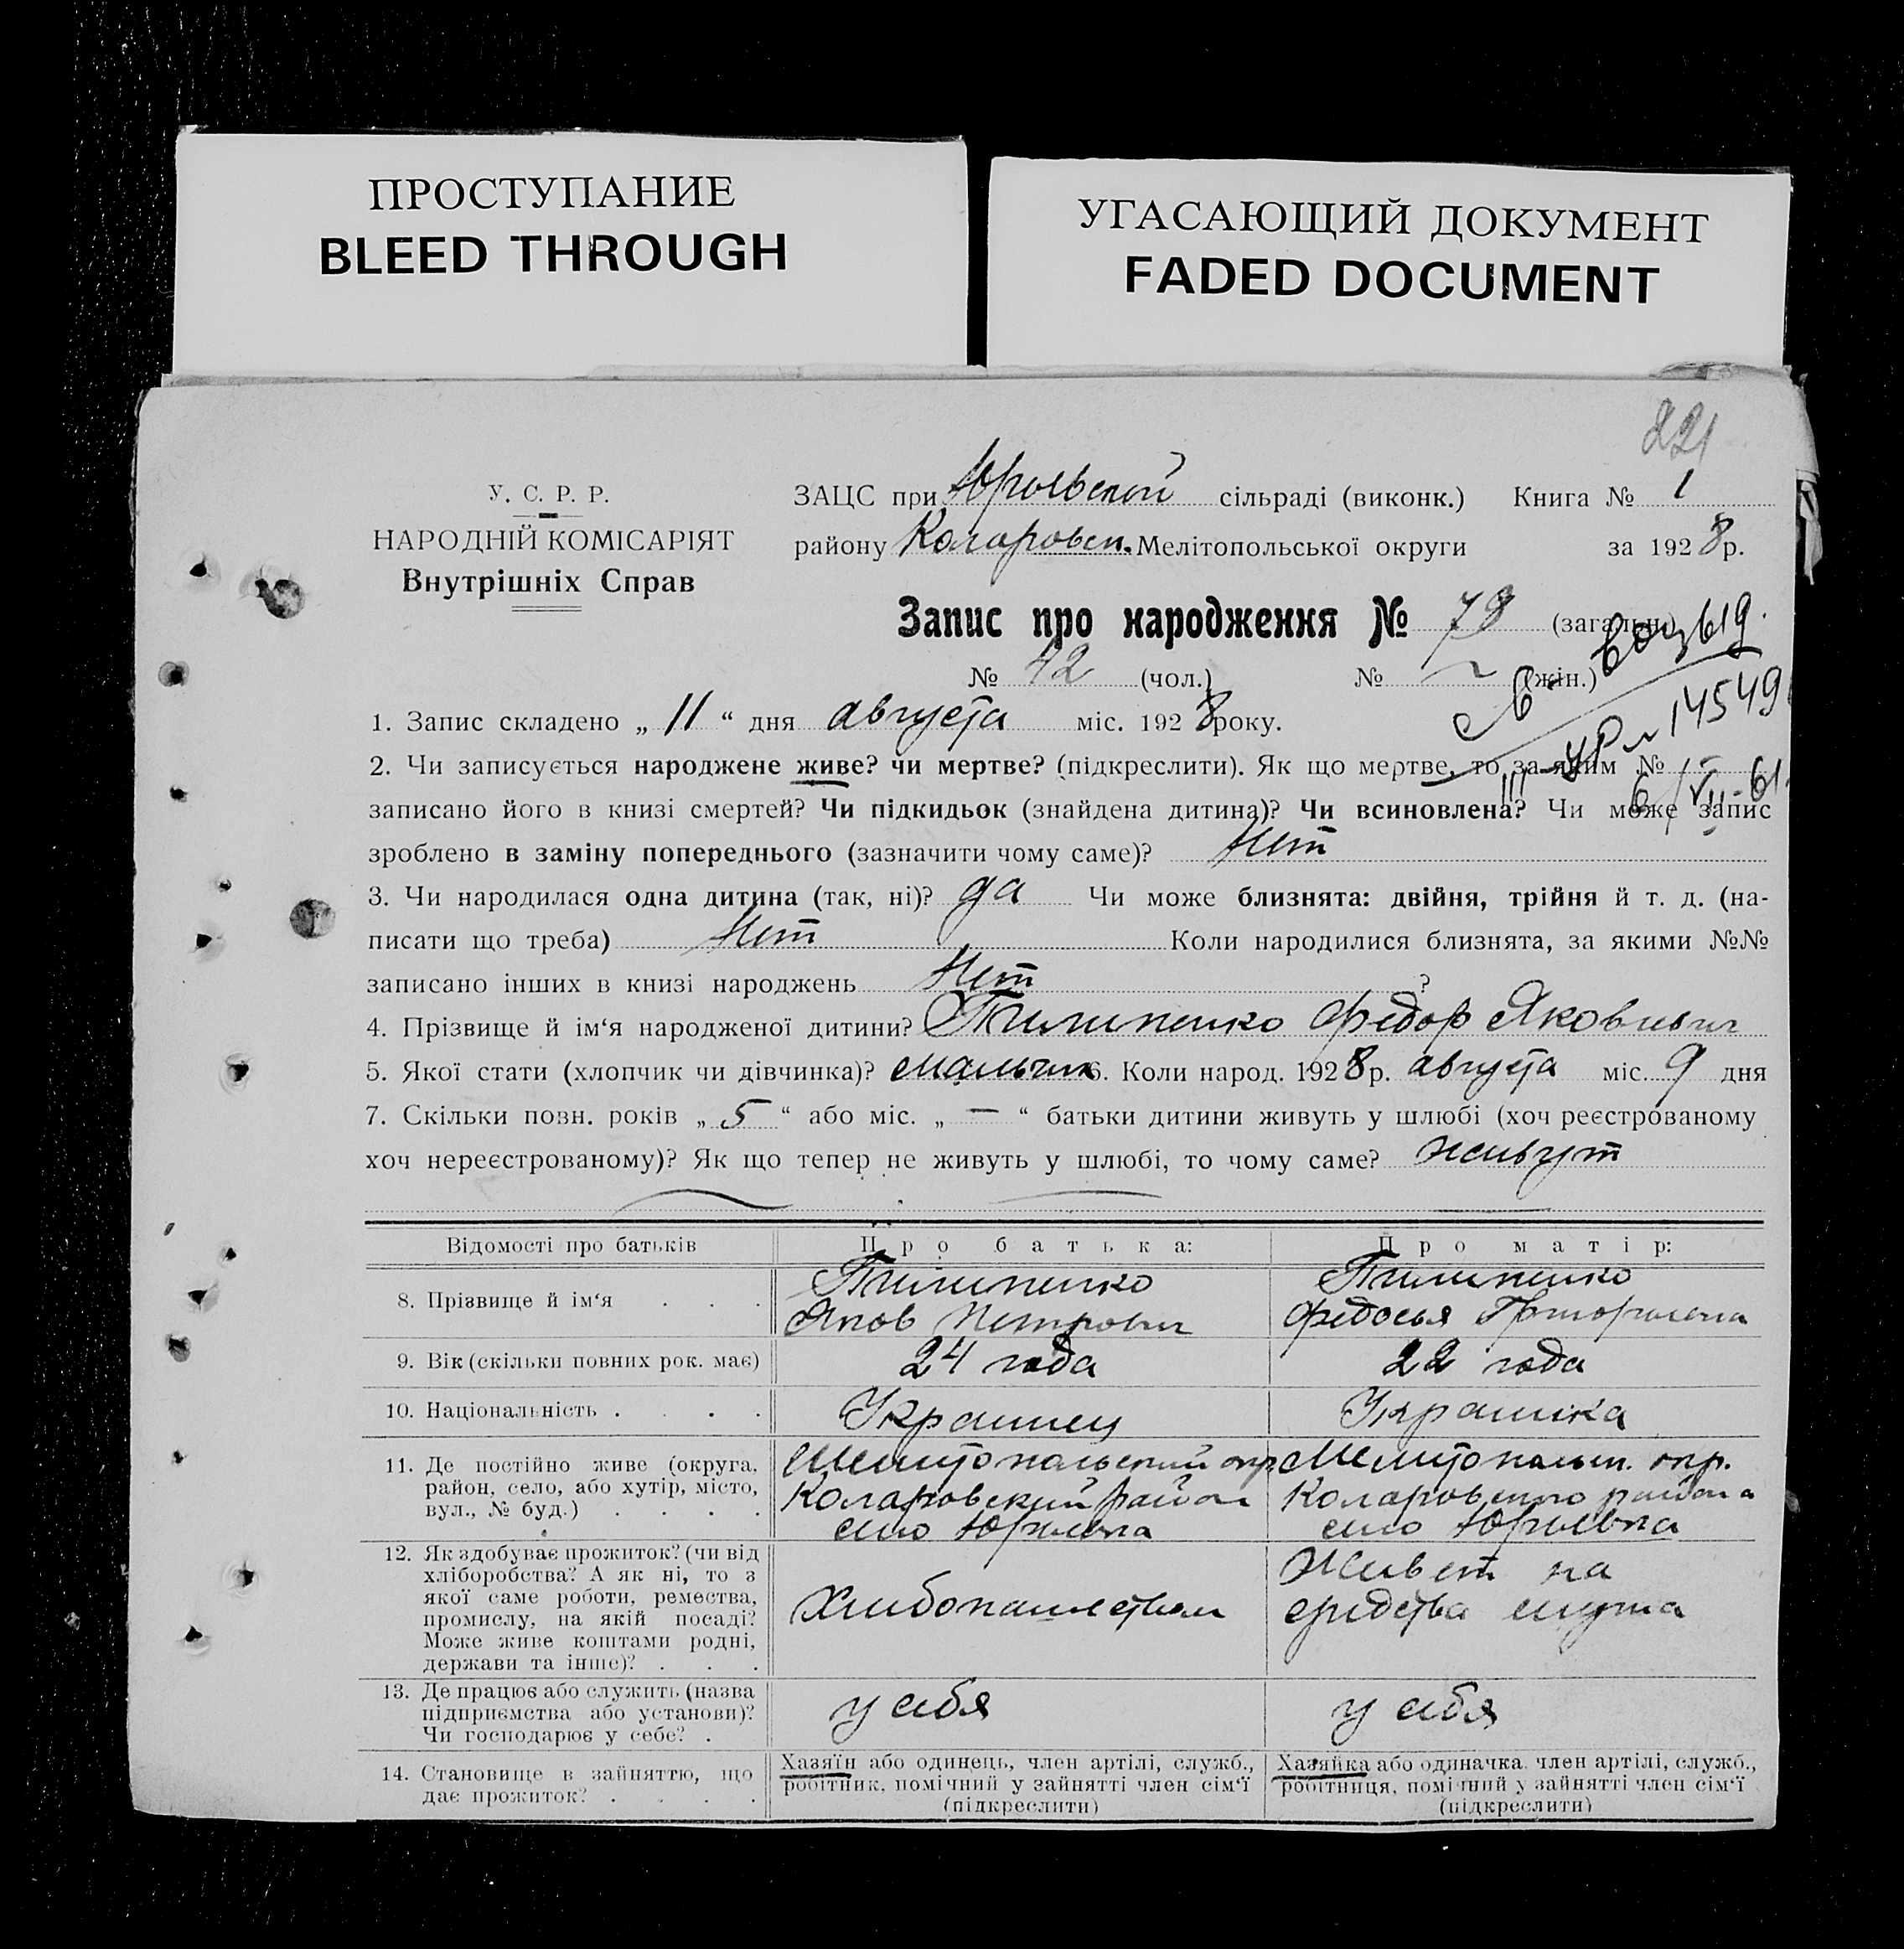 ПРОСТУПАНИЕ
BLEED THROUGH
УГАСАЮЩИЙ ДОКУМЕНТ
FADED DOCUMENT
221
У. С. Р. Р.
НАРОДНІЙ КОМІСАРІЯТ
Внутрішніх Справ
ЗАЦС при Юрьевской сільраді (виконк.) Книга № 1
району Коларовск. Мелітопольської округи за 1928 р.
Запис про народження № 79 (загальн.)
№ 42 (чол.) № (жін.)
1. Запис складено „ 11 “ дня августа міс. 1928 року.
14549
2. Чи записується народжене живе? чи мертве? (підкреслити). Як що мертве, то за яким №
6/VII-61.
записано його в книзі смертей? Чи підкидьок (знайдена дитина)? Чи всиновлена? Чи може запис
зроблено в заміну попереднього (зазначити чому саме)? Нет
3. Чи народилася одна дитина (так, ні)? да Чи може близнята: двійня, трійня й т. д. (на-
писати що треба) Нет Коли народилися близнята, за якими №№
записано інших в книзі народжень Нет ?
4. Прізвище й ім‘я народженої дитини? Пилипенко Федор Яковлевич
5. Якої стати (хлопчик чи дівчинка)? мальчик 6. Коли народ. 1928 р. августа міс. 9 дня
7. Скільки повн. років „ 5 “ або міс. „ — “ батьки дитини живуть у шлюбі (хоч реєстрованому
хоч нереєстрованому)? Як що тепер не живуть у шлюбі, то чому саме? живут
Відомості про батьків Про батька: Про матір:
8. Прізвище й ім‘я . . . Пилипенко Яков Петрович Пилипенко Федосья Григорьевна
9. Вік (скільки повних рок. має) 24 года 22 года
10. Національність . . . . Украинец Украинка
11. Де постійно живе (округа, район, село, або хутір, місто, вул., № буд.) . . . .
Мелитопольский окр. Коларовский район село Юрьевка
Мелитопольск. окр. Коларовского района село Юрьевка
12. Як здобуває прожиток? (чи від
хліборобства? А як ні, то з
якої саме роботи, ремества,
промислу, на якій посаді?
Може живе коштами родні,
держави та інше)? . . .
Хлибопашеством
Живет на
средства мужа
13. Де працює або служить (назва
підприємства або установи)?
Чи господарює у себе? .
у себя
у себя
14. Становище в зайняттю, що
дає прожиток? . . . .
Хазяїн або одинець, член артілі, служб.,
робітник, помічний у зайнятті член сім‘ї
(підкреслити)
Хазяйка або одиначка, член артілі, служб.,
робітниця, помічний у зайнятті член сім‘ї
(підкреслити)